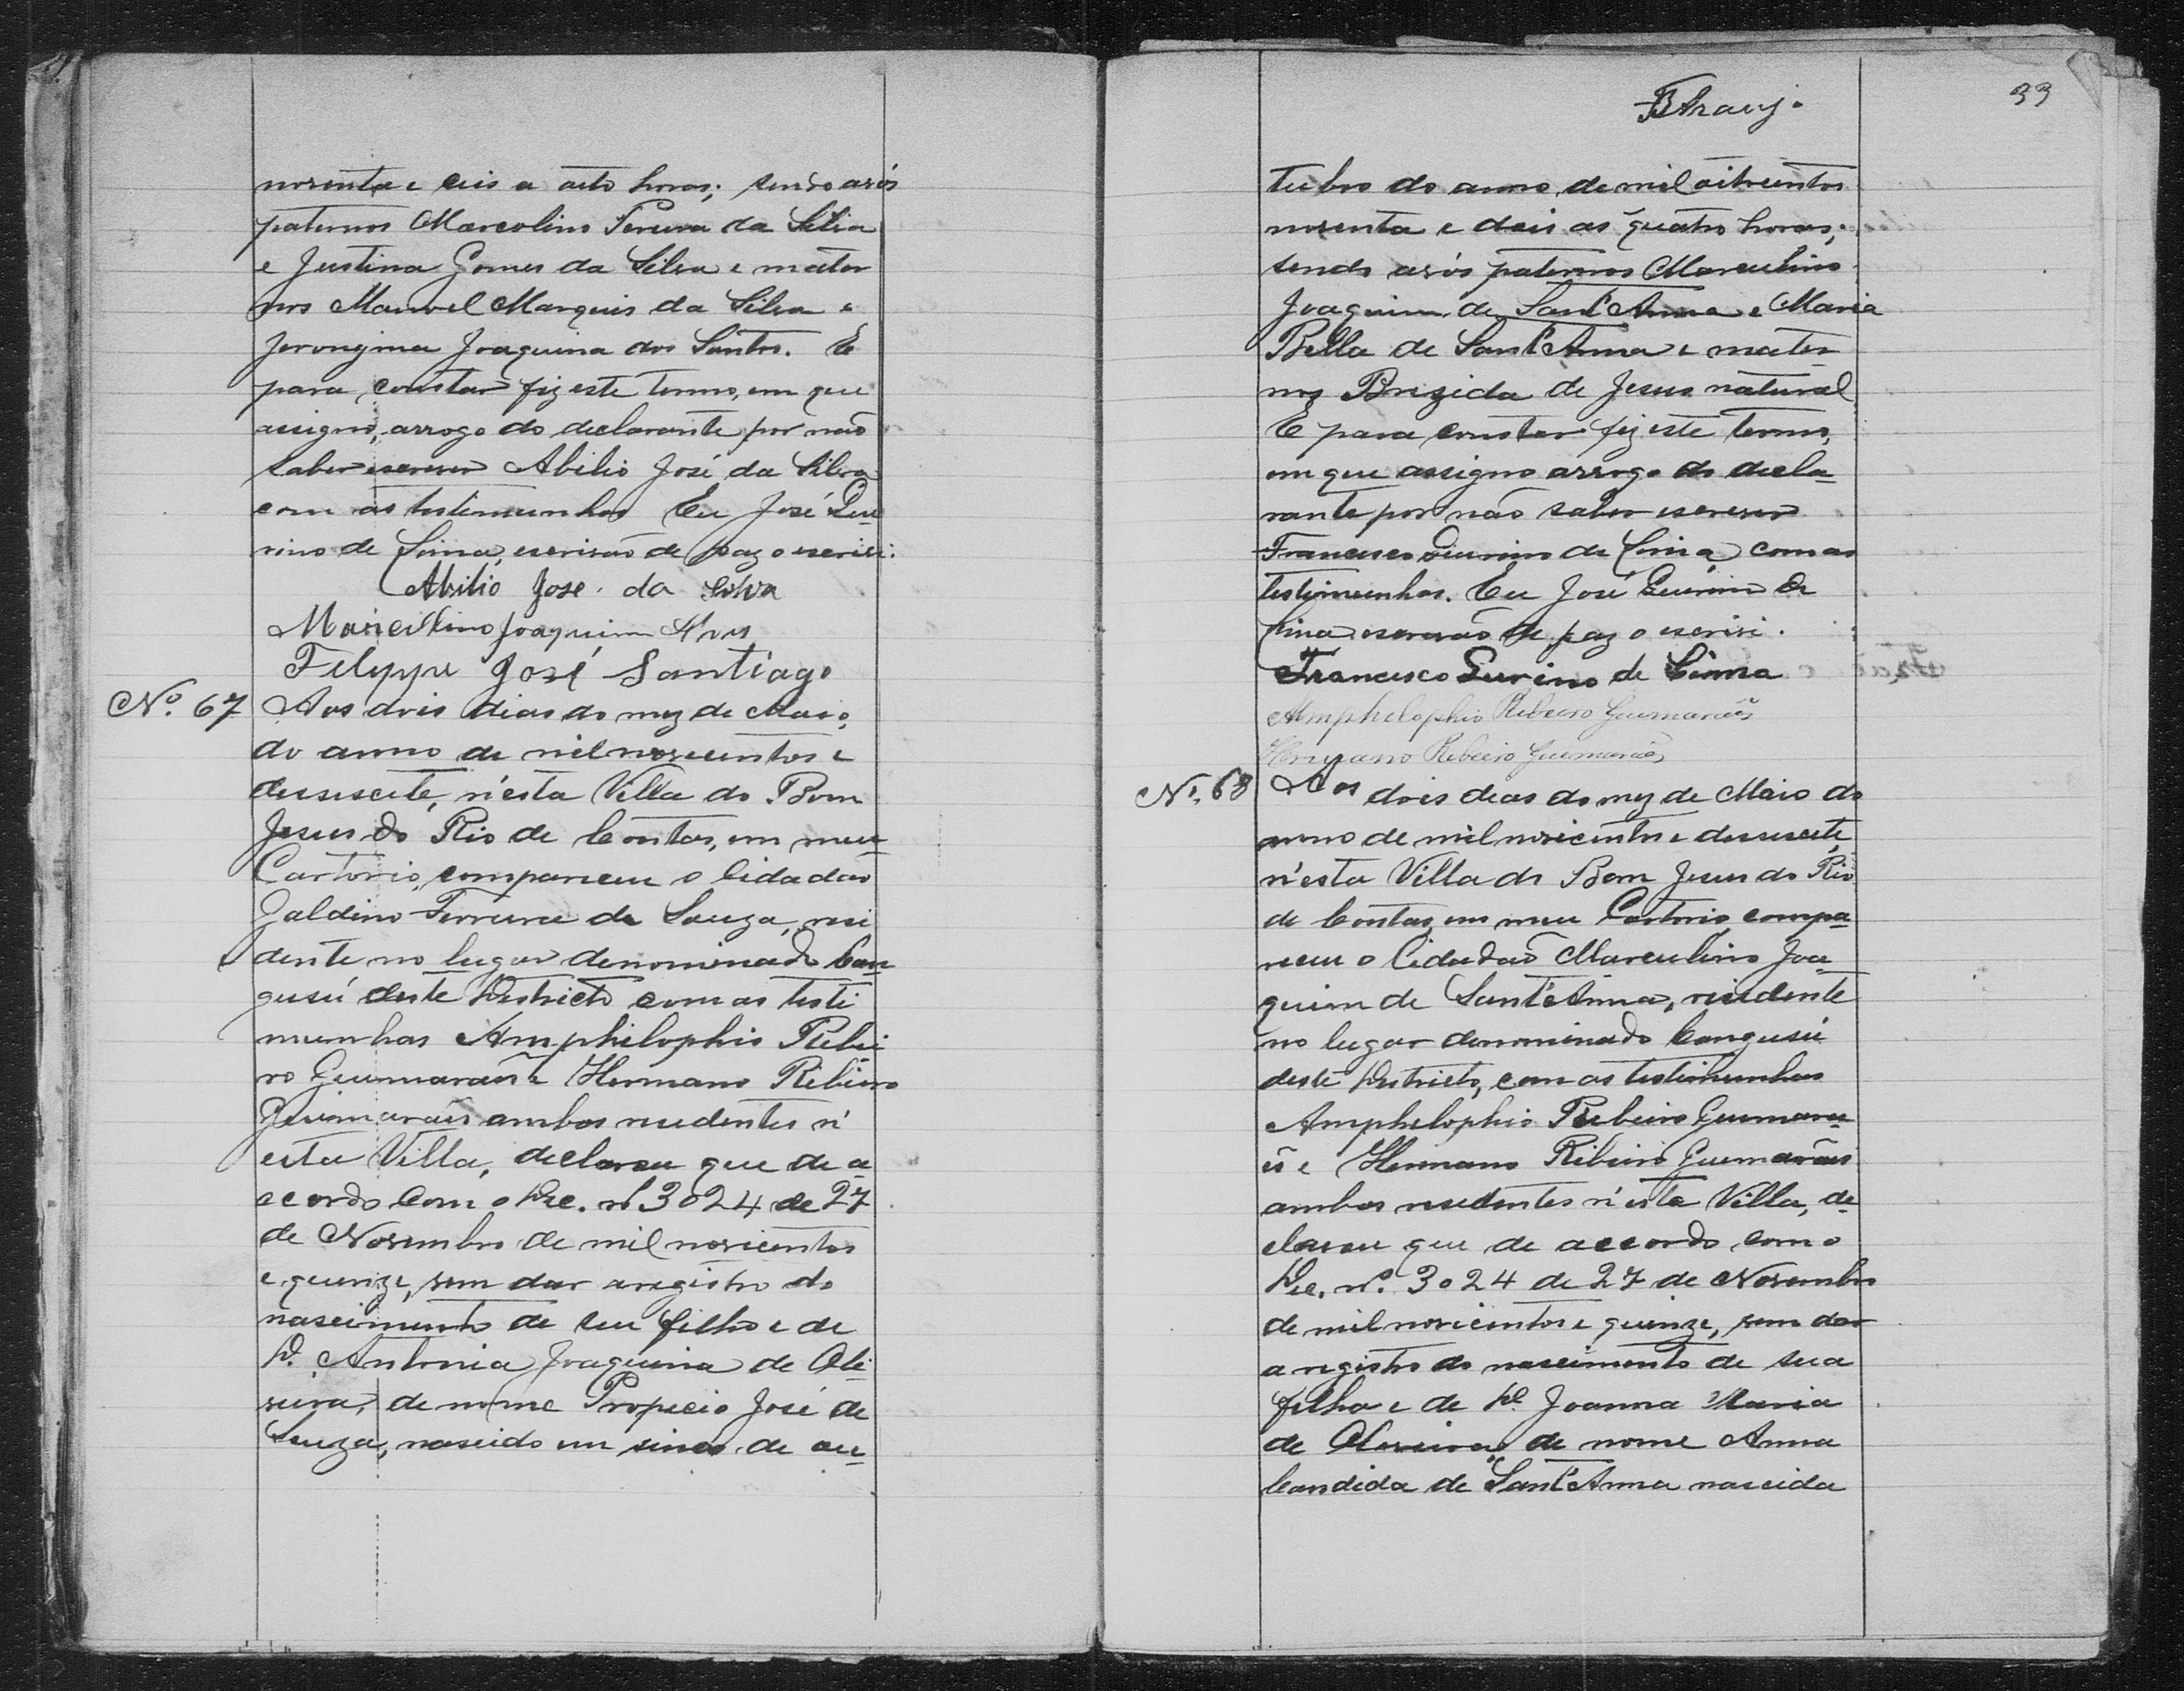 nosenta e ceis a oito horas; sendo avós
paternos Marcolino Pereira da Silva
e Justina Gomes da Silva e mater
nos Manoel Marques da Silva e
Jeronyma Joaquina dos Santos. E
para constar fiz este termo, em que
assigno, arrogo do declarante por não
saber escrever Abilio José da Silva
com as testimunhas Eu José Qui
rino de Lima, escrivão de paz o escrivi.
Abilio Jose da Silva
Marcellino Joaquim Alves
Felippe José Santiago
Nº. 67 Aos dois dias do mez de Maio,
do anno de mil novecentos e
desesete, n'esta Villa do Bom
Jesus do Rio de Contas, em meu
Cartorio, compareceu o Cidadão
Galdino Ferreira de Souza, resi
dente no lugar denominado Can
gusú deste Destricto com as testi
munhas Amphilophio Ribei
ro Guimarães e Hermano Ribeiro
Guimarães ambos residentes n'
esta Villa, declarou que de a
ccordo com o Dec. nº 3024 de 27
de Novembro de mil novicentos
e quinze, vem dar a registro do
nascimento de seu filho e de
D. Antonia Joaquina de Oli
veira, de nome Propicio José de
Souza, nascido em sinco de ou-
BArauj.
33
tubro do anno de mil oitocentos
nosenta e dois as quatro horas;
sendo avós paternos Marculino
Joaquim de Sant'Anna e Maria
Bella de Sant'Anna e mater
nos Brizida de Jesus natural
E para constar fiz este termo,
em que assigno arrogo do decla-
rante por não saber escrever
Francisco Quirino de Lima, com as
testimunhas. Eu José Quirino de
Lima escrivão de paz o escrivi.
Francisco Qurino de Lima
Amphelophio Ribeiro Guimarães
Hermano Ribeiro Guimarães
Nº. 68 Aos dois dias do mez de Maio do
anno de mil novicentos e desesete,
n'esta Villa do Bom Jesus do Rio
de Contas, em meu Cartorio, compa-
receu o Cidadão Marculino Joa-
quim de Sant'Anna, residente
no lugar denominado Cangusú
deste Destricto, com as testimunhas
Amphelophio Ribeiro Guimara-
ẽs e Hermano Ribeiro Guimarães
ambos residentes n'esta Villa, de-
clarou que de accordo com o
Dec. nº. 3024 de 27 de Novembro
de mil novicentos e quinze, vem dar
a registro do nascimento de sua
filha e de D. Joanna Maria
de Oliveira, de nome Anna
Candida de Sant'Anna nascida